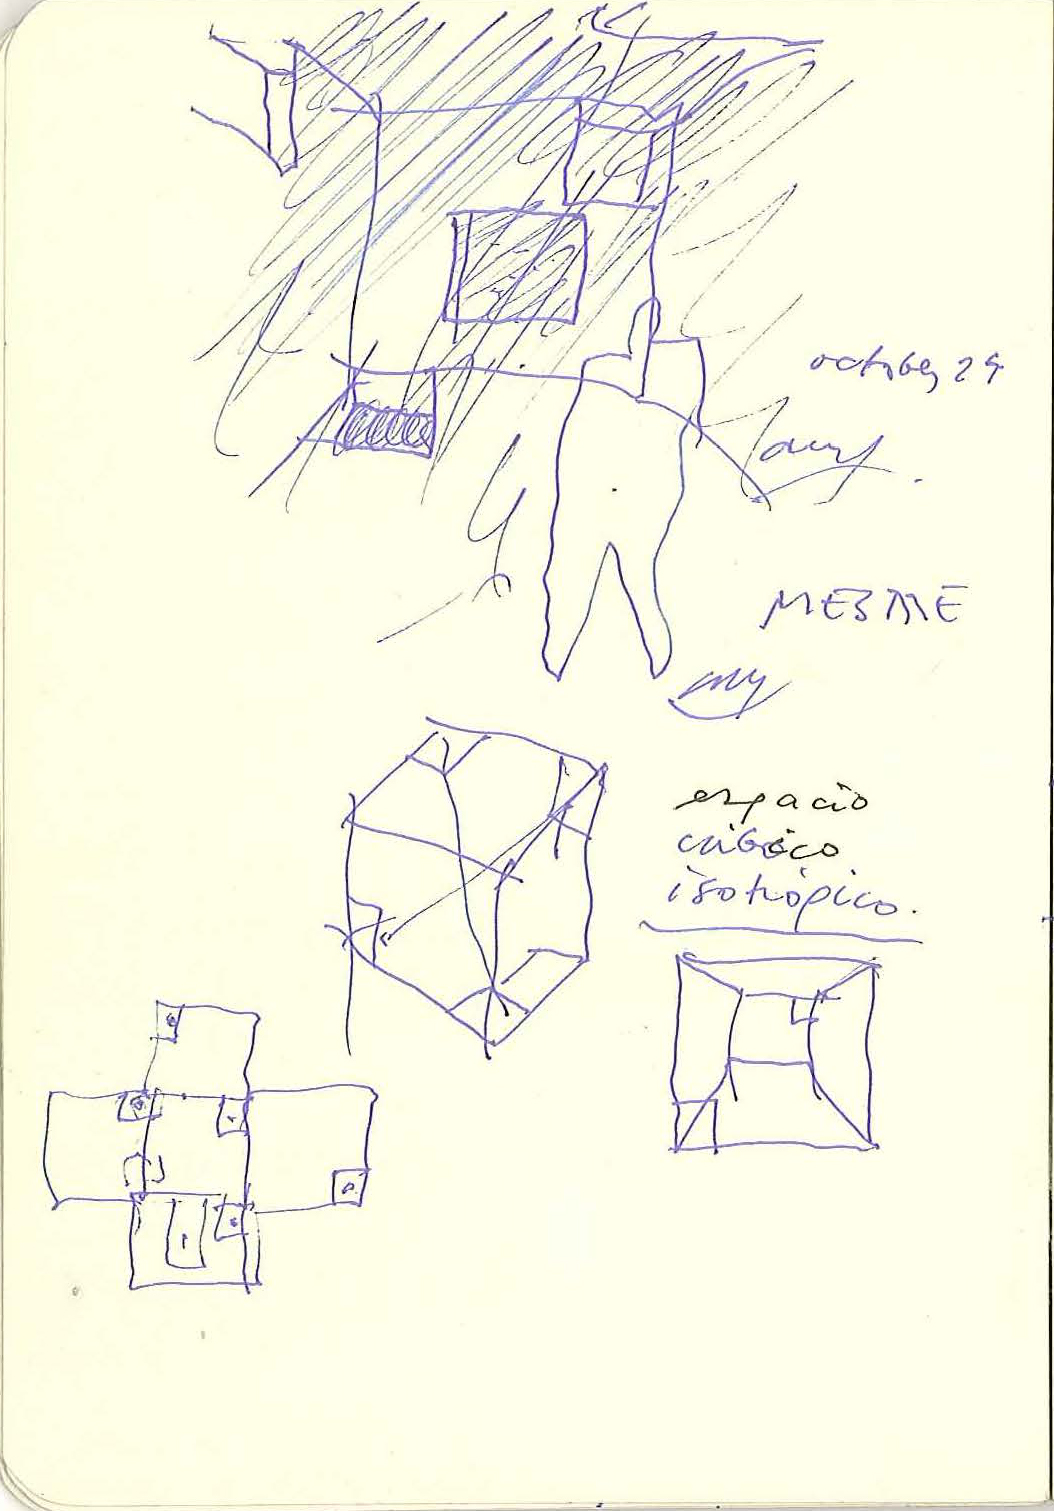 october 29
MESTRE
espacio
cúbico
isotrópico.